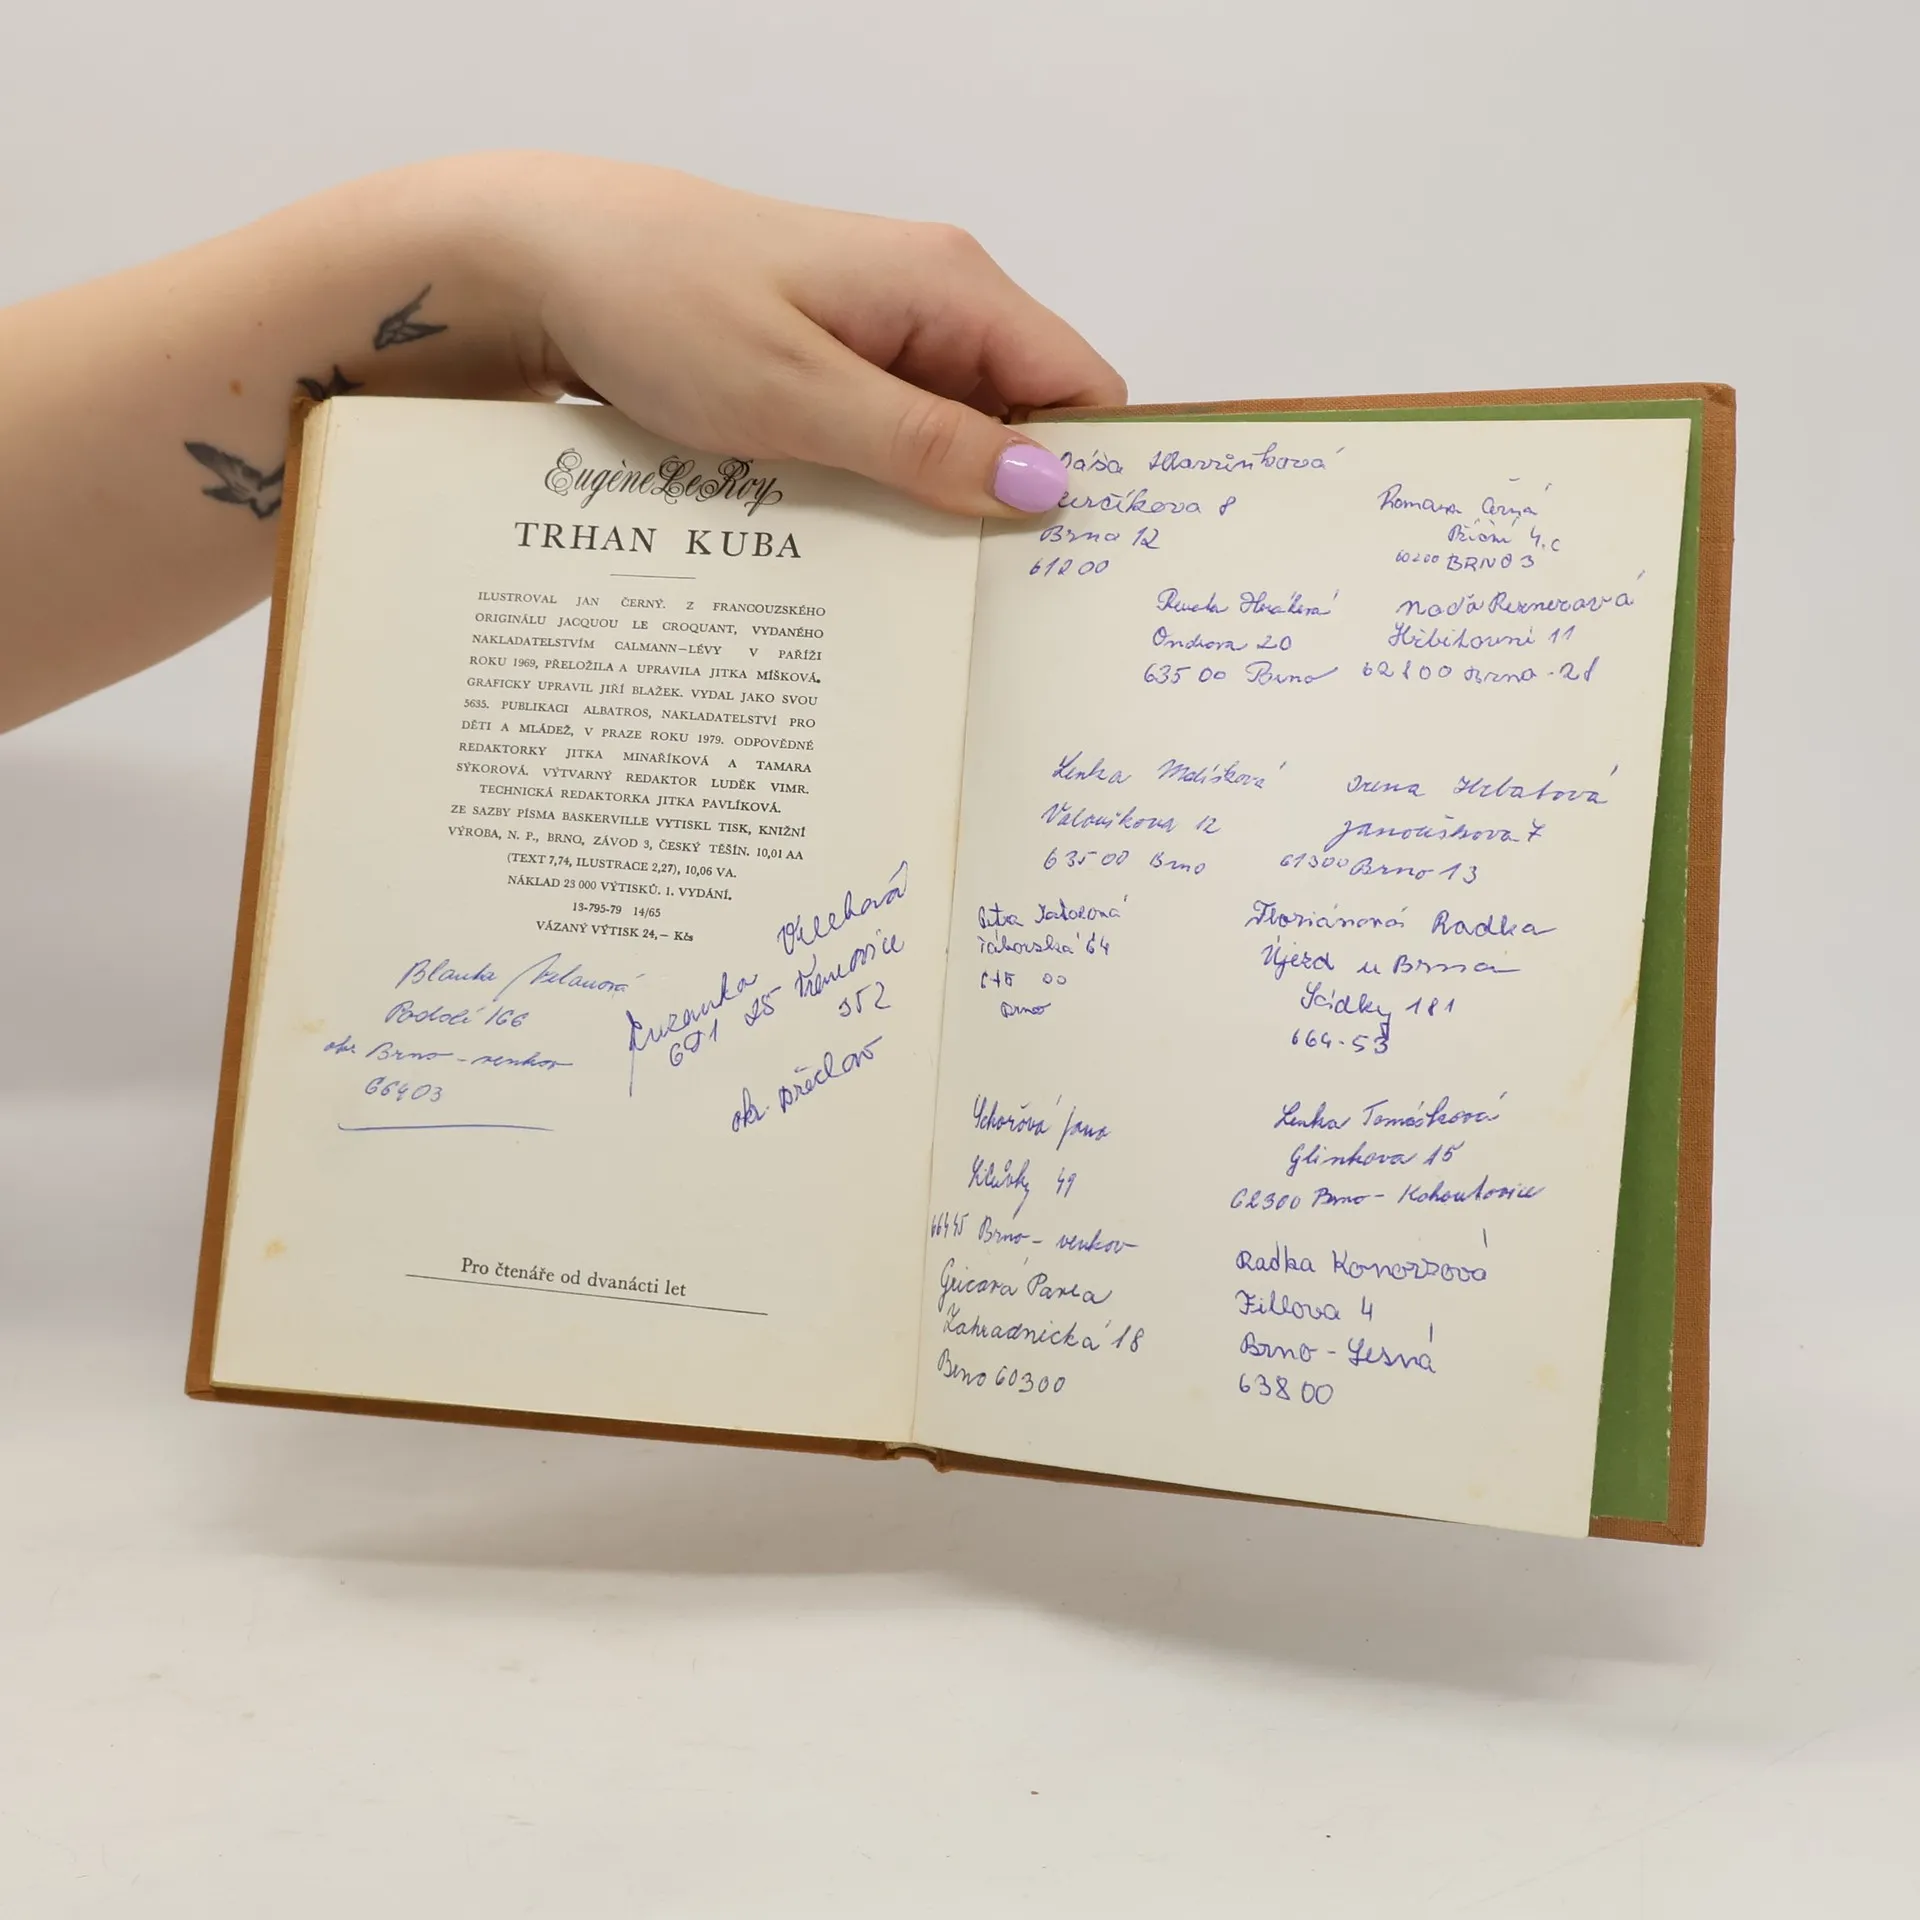 Eugène Le Roy
TRHAN KUBA
ILUSTROVAL JAN ČERNÝ. Z FRANCOUZSKÉHO
ORIGINÁLU JACQUOU LE CROQUANT, VYDANÉHO
NAKLADATELSTVÍM CALMANN–LÉVY V PAŘÍŽI
ROKU 1969, PŘELOŽILA A UPRAVILA JITKA MÍŠKOVÁ.
GRAFICKY UPRAVIL JIŘÍ BLAŽEK. VYDAL JAKO SVOU
5635. PUBLIKACI ALBATROS, NAKLADATELSTVÍ PRO
DĚTI A MLÁDEŽ, V PRAZE ROKU 1979. ODPOVĚDNÉ
REDAKTORKY JITKA MINAŘÍKOVÁ A TAMARA
SÝKOROVÁ. VÝTVARNÝ REDAKTOR LUDĚK VIMR.
TECHNICKÁ REDAKTORKA JITKA PAVLÍKOVÁ.
ZE SAZBY PÍSMA BASKERVILLE VYTISKL TISK, KNIŽNÍ
VÝROBA, N. P., BRNO, ZÁVOD 3, ČESKÝ TĚŠÍN. 10,01 AA
(TEXT 7,74, ILUSTRACE 2,27), 10,06 VA.
NÁKLAD 23 000 VÝTISKŮ. 1. VYDÁNÍ.
13-795-79 14/65
VÁZANÝ VÝTISK 24,– Kčs
Blanka
Podolí 166
okr. Brno-venkov
66403
Zuzanka
691 25
352
okr. Břeclav
Pro čtenáře od dvanácti let
Brno 12
61200
Romana Černá
Příční 4.c
60200 BRNO 3
Renata
Ondrova 20
635 00 Brno
Naďa Rernerová
Hřbitovní 11
62800 Brno-28
Lenka
Valouškova 12
635 00 Brno
Irena Hrbatová
Janouškova 7
61300 Brno 13
Petra
Táborská 64
Brno
Floriánová Radka
Újezd u Brna
Sídky 181
664-53
Jana
Silůvky 49
66445 Brno-venkov
Gricová Pavla
Zahradnická 18
Brno 60300
Lenka Tomášková
Glinkova 15
62300 Brno-Kohoutovice
Radka Konorzová
Fillova 4
Brno-Lesná
63800